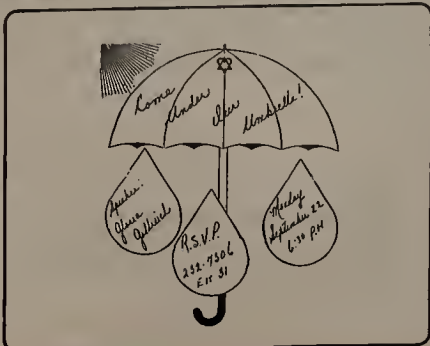 Come Under Our Umbrella!
Speaker:
Gloria
Goldreich
R.S.V.P.
232-7306
Ext 31
Monday
September 22
6:30 P.M